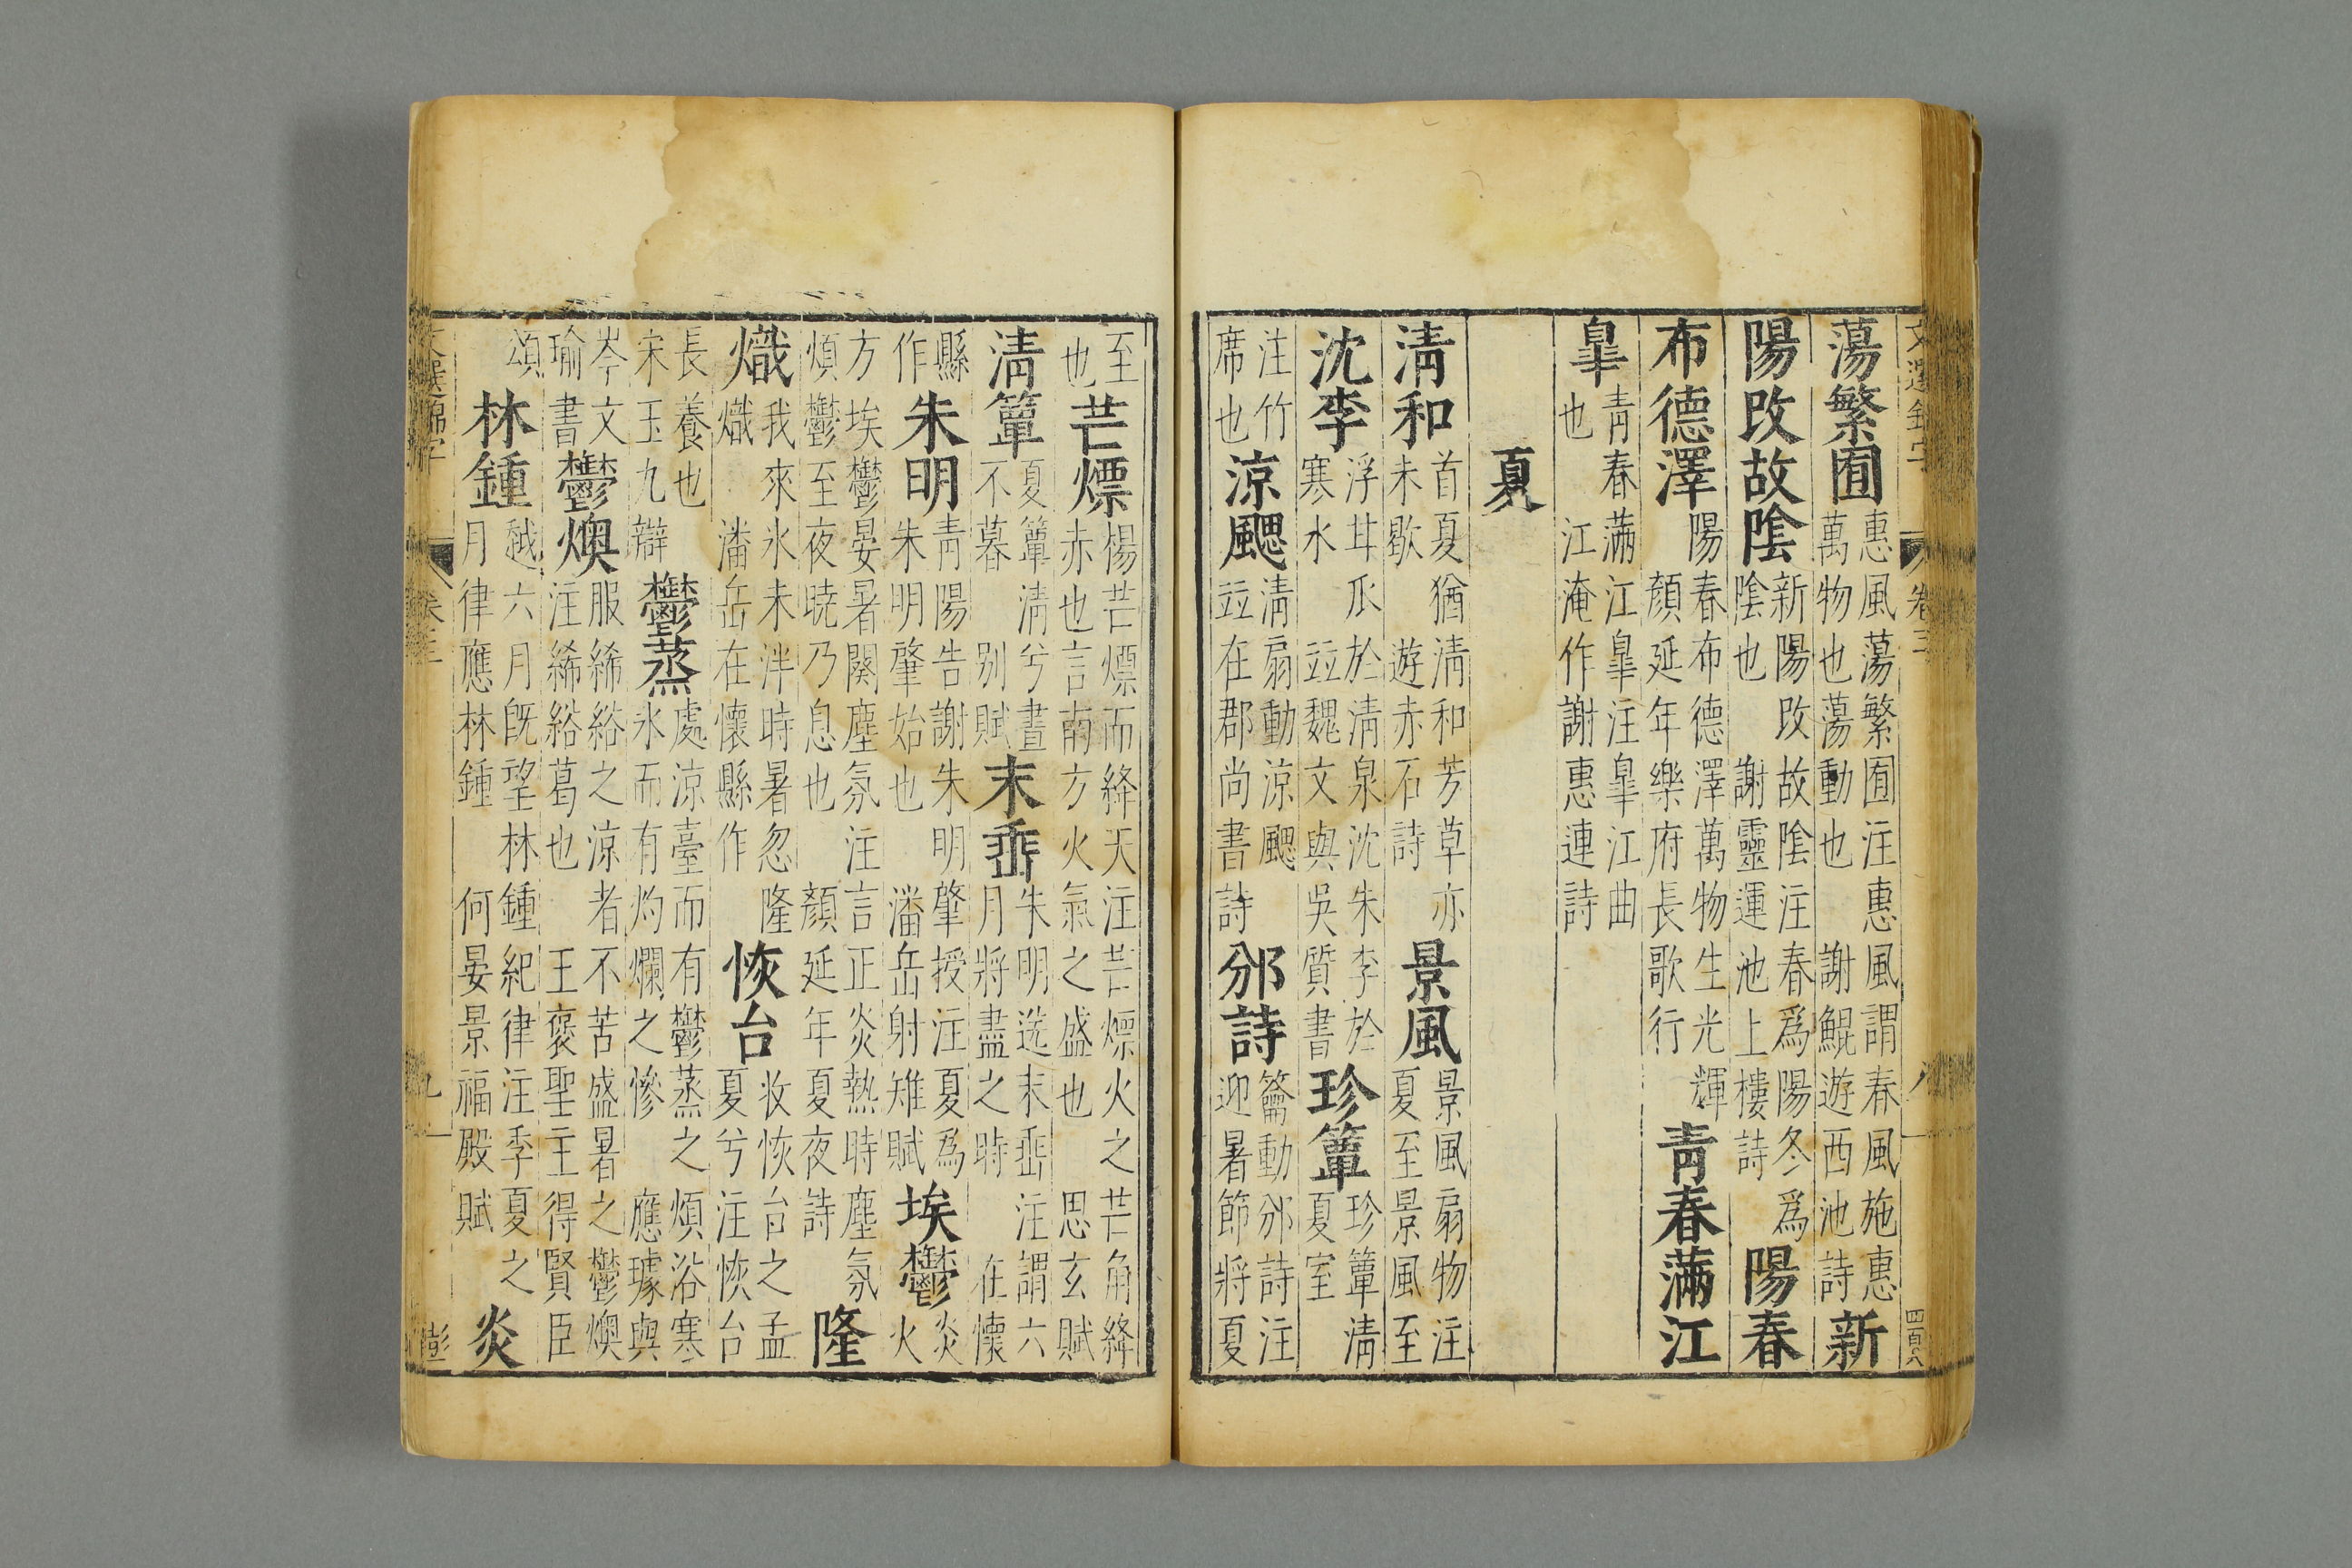 文選錦字 卷三 八 四百八
蕩繁囿
惠風蕩繁囿注惠風謂春風施惠
萬物也蕩動也 謝鯤遊西池詩
新
陽改故陰
新陽改故陰注春爲陽冬爲
陰也 謝靈運池上樓詩
陽春
布德澤
陽春布德澤萬物生光輝
顔延年樂府長歌行
青春滿江
臯
青春滿江臯注臯江曲
也 江淹作謝惠連詩
夏
清和
首夏猶清和芳草亦
未歇 遊赤石詩
景風
景風扇物注
夏至景風至
沈李
浮甘瓜於清泉沈朱李於
寒水 竝魏文與吳質書
珍簟
珍簟清
夏室
注竹
席也
涼颸
清扇動涼颸
竝在郡尚書詩
邠詩
籥動邠詩注
迎暑節將夏
至
也
芒熛
楊芒熛而絳天注芒熛火之芒角絳
赤也言南方火氣之盛也 思玄賦
清簟
夏簟清兮晝
不暮 别賦
末垂
朱明迭末垂注謂六
月將盡之時 在懷
縣
作
朱明
青陽告謝朱明肇授注夏爲
朱明肇始也 潘岳射雉賦
埃鬱
炎
火
方埃鬱晏暑闋塵氛注言正炎熱時塵氛
煩鬱至夜曉乃息也 顔延年夏夜詩
隆
熾
我來氷未泮時暑忽隆
熾 潘岳在懷縣作
恢台
收恢台之孟
夏兮注恢台
長養也
宋玉九辯
鬱蒸
處涼臺而有鬱蒸之煩浴寒
氷而有灼爛之慘 應璩與
岑文
瑜書
鬱燠
服絺綌之涼者不苦盛暑之鬱燠
注絺綌葛也 王褒聖主得賢臣
頌
林鍾
越六月旣望林鍾紀律注季夏之
月律應林鍾 何晏景福殿賦
炎
文選錦字 卷三 九 彭